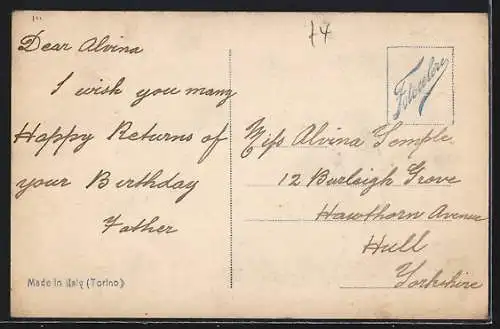 74
Dear Alvina
I wish you many
Happy Returns of
your Birthday
Father
Made in Italy (Torino)
Fotocelere
Miss Alvina Temple
12 Burleigh Grove
Hawthorn Avenue
Hull
Yorkshire